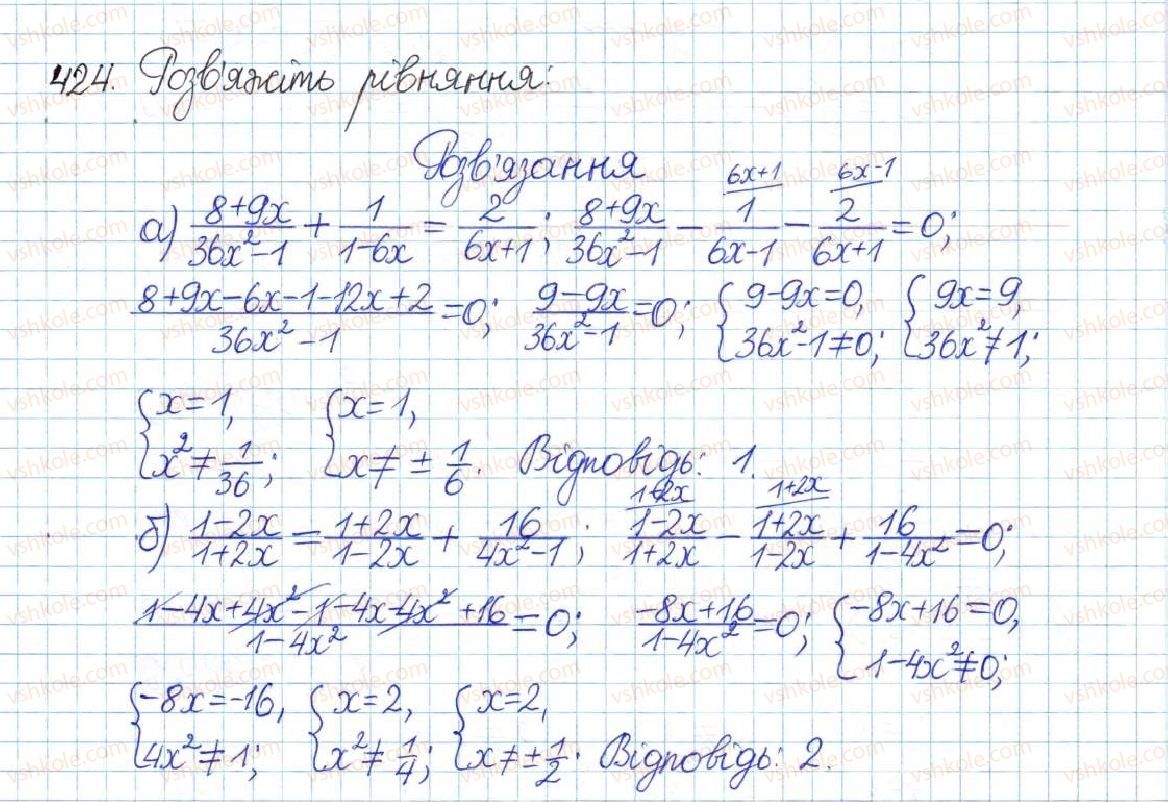 424. Розв'яжіть рівняння:
Розв'язання
а) (8+9x)/(36x²-1) + 1/(1-6x) = 2/(6x+1); (8+9x)/(36x²-1) - 1/(6x-1) (6x+1) - 2/(6x+1) (6x-1) = 0;
(8+9x-6x-1-12x+2)/(36x²-1) = 0; (9-9x)/(36x²-1) = 0; { 9-9x=0, 36x²-1≠0; { 9x=9, 36x²≠1;
{ x=1, x²≠1/36; { x=1, x≠±1/6. Відповідь: 1.
б) (1-2x)/(1+2x) = (1+2x)/(1-2x) + 16/(4x²-1); (1-2x)/(1+2x) (1+2x) - (1+2x)/(1-2x) (1+2x) + 16/(1-4x²) = 0;
(1-4x+4x²-1-4x-4x²+16)/(1-4x²) = 0; (-8x+16)/(1-4x²) = 0; { -8x+16=0, 1-4x²≠0;
{ -8x=-16, 4x²≠1; { x=2, x²≠1/4; { x=2, x≠±1/2. Відповідь: 2.
vshkole.com